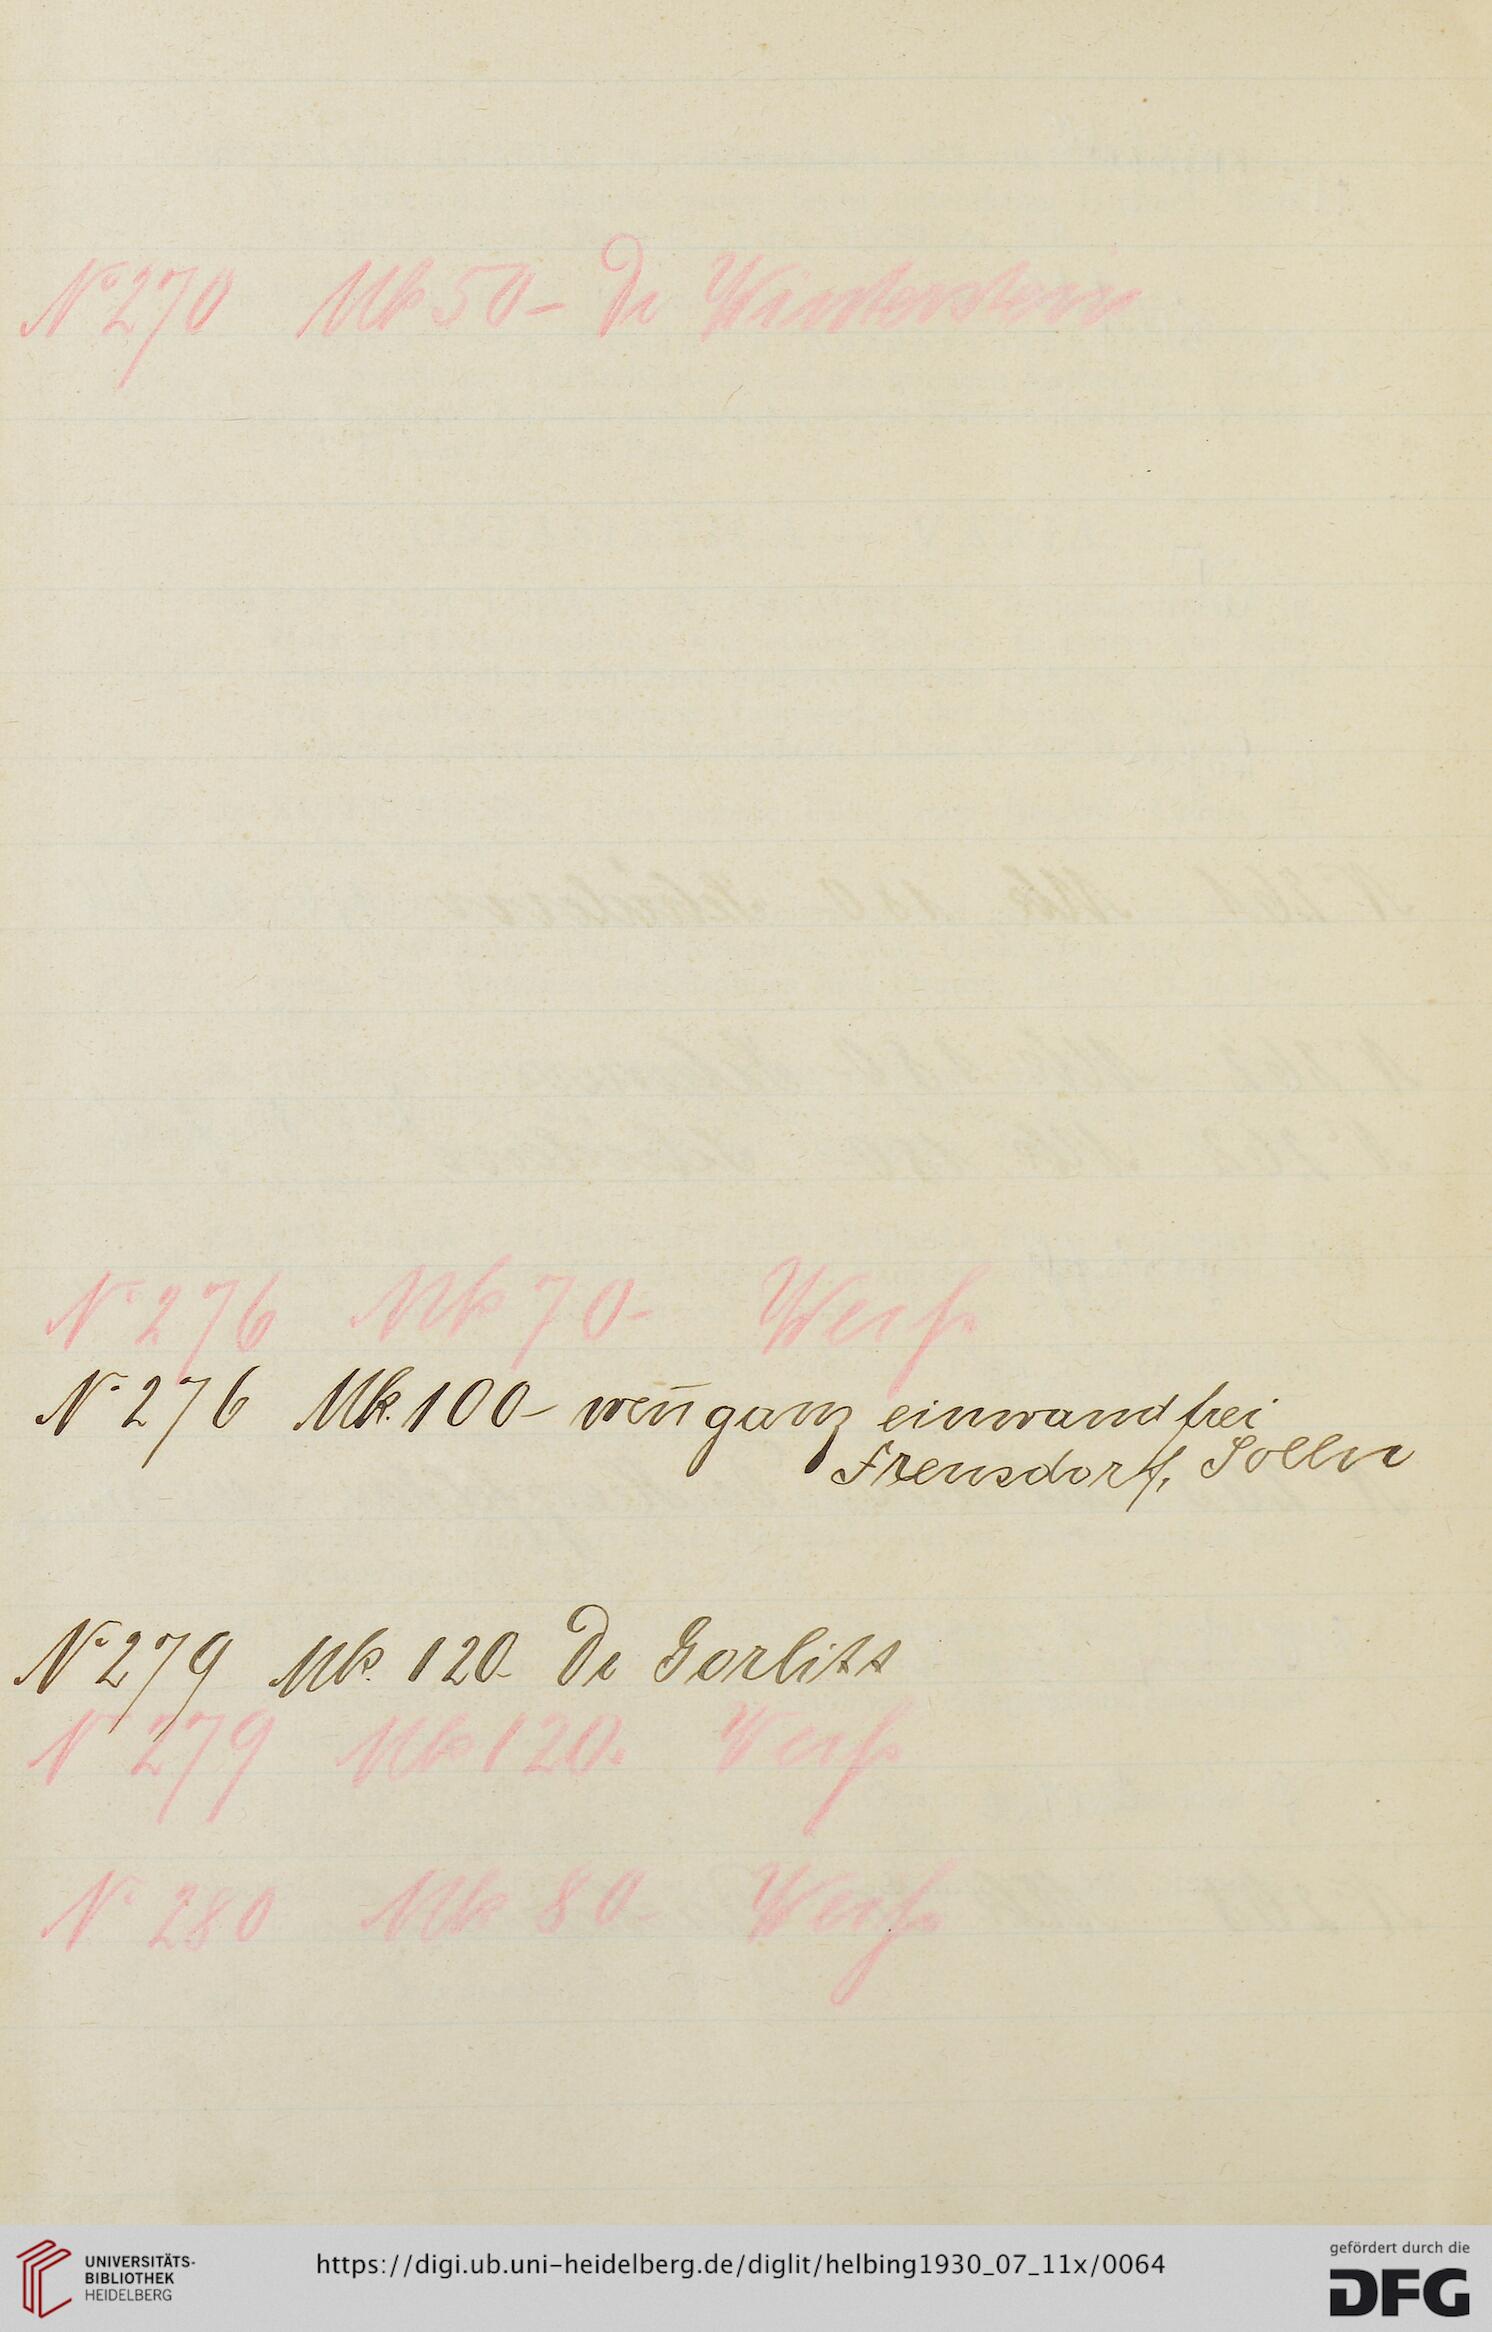 No 270 Mk 50- Dr Winterstein
No 276 Mk 70- Weiß
No 276 Mk. 100- weñ ganz einwandfrei
Frensdorf, Solln
No 279 Mk. 120- Dr Gorlitz
No 279 Mk 120. Weiß
No 280 Mk 80- Weiß
UNIVERSITÄTS-
BIBLIOTHEK
HEIDELBERG
https://digi.ub.uni-heidelberg.de/diglit/helbing1930_07_11x/0064
gefördert durch die
DFG